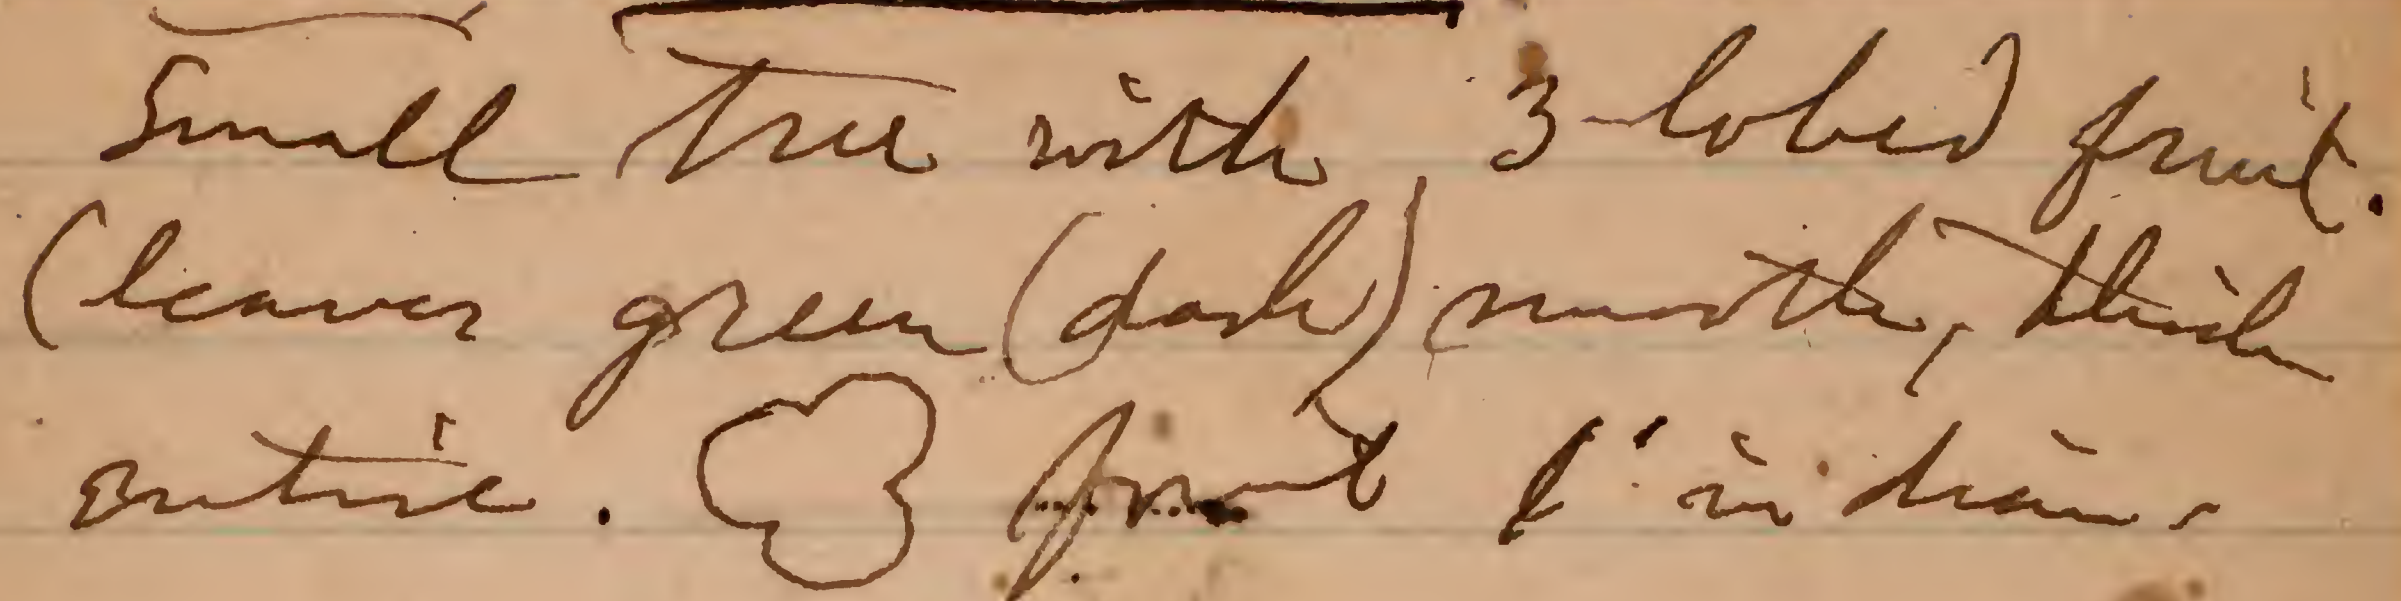 Small Tree with 3-lobed fruit.
(leaves green (dark) smooth, thick
entire. fruit 1' in diam.